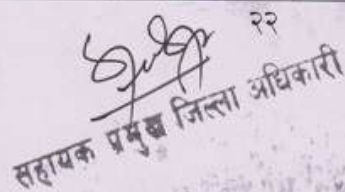 २२
सहायक प्रमुख जिल्ला अधिकारी